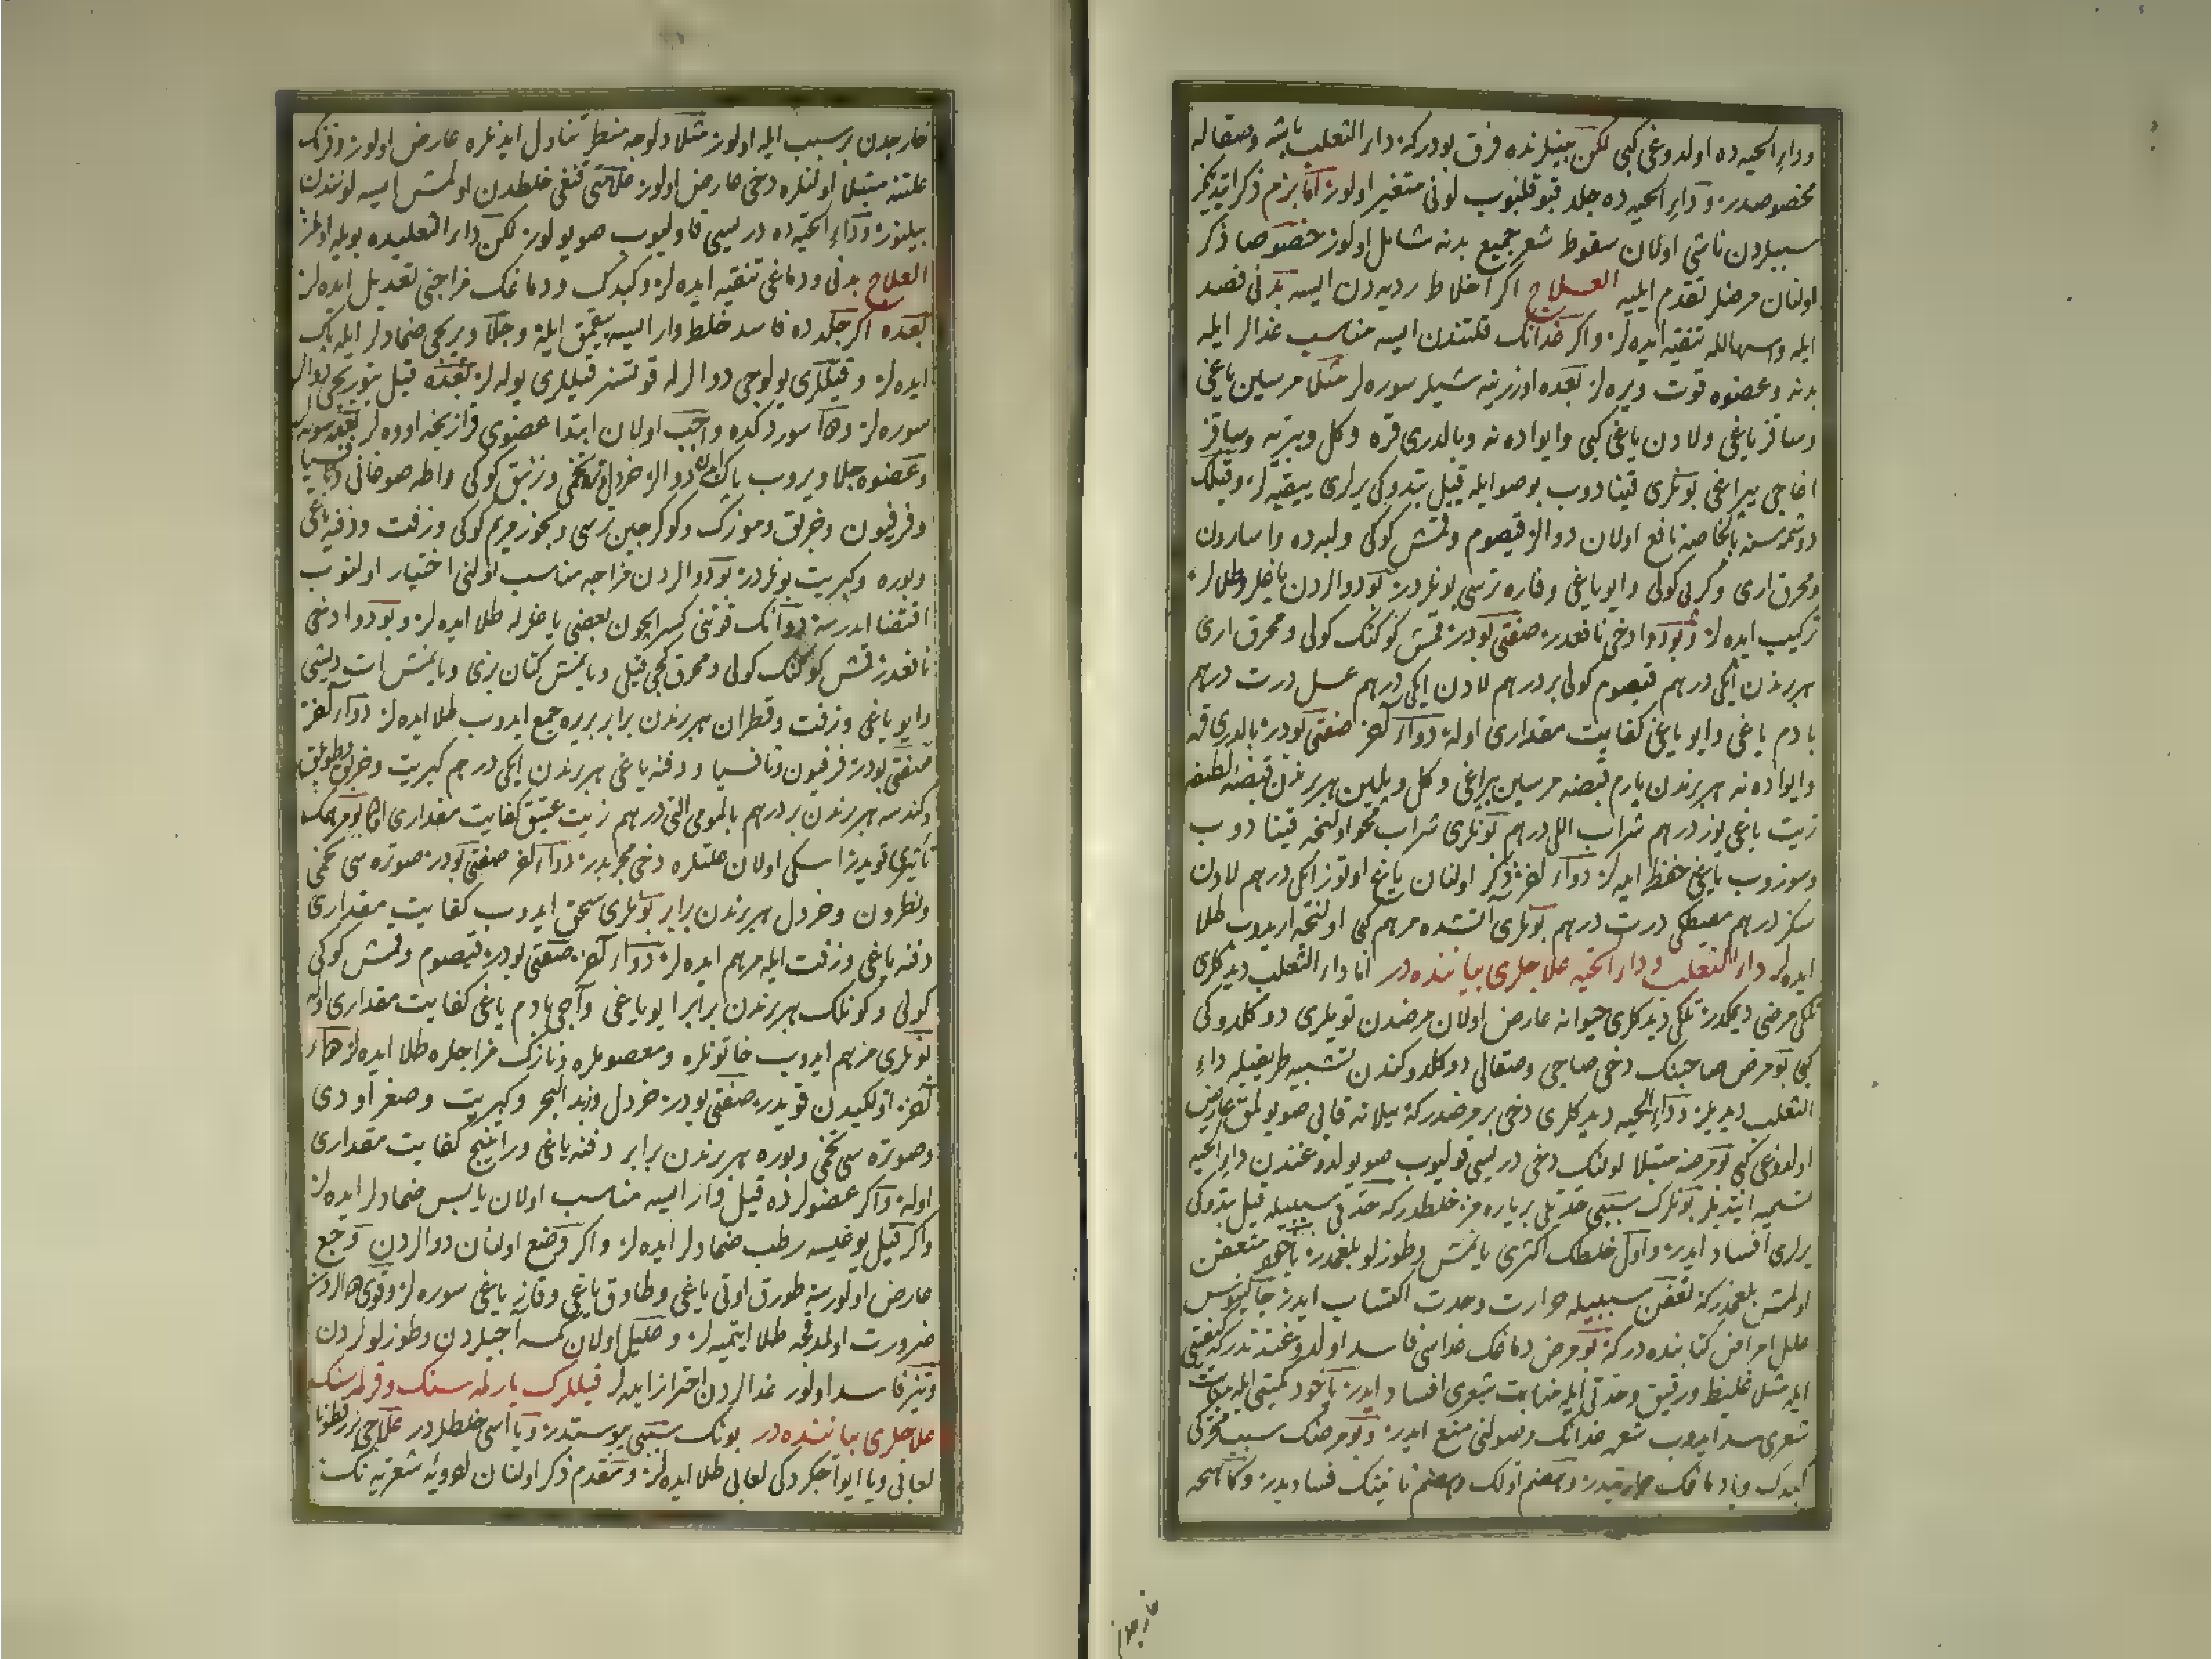 وداء الحیه ده اولدوغی کبی لکن بینلرنده فرق بودرکه داء الثعلب باشه وصقاله
مخصوصدر وداء الحیه ده جلد قبوقلنوب لونی متغیر اولور اما بزم ذکر ایتدیکمز
سببلردن ناشی اولان سقوط شعر جمیع بدنه شامل اولور خصوصا ذکر
اولنان مرضلر تقدم ایلیه العلاج اکر اخلاط ردیه دن ایسه بدنی فصد
ایله واسهالله تنقیه ایده لر واکر غدانک قلتندن ایسه مناسب غدالر ایله
بدنه وعضوه قوت ویره لر بعده اوزرینه شیلر سوره لر مثلا مرسین یاغی
وساقز یاغی ولادن یاغی کبی وایواده نه وبالدری قره وکل وساقز
اغاجی یپراغی بونلری قینادوب بوصو ایله قیل بتدوکی یرلری ییقیه لر وقیلک
دوشمسنه بالخاصه نافع اولان دوالر قیصوم وقمش کوکی واسارون
ومحرق اری وکولی وایو یاغی وفاره ترسی بونلردر بو دوالردن یاغلر وطلالر
ترکیب ایده لر وبو دوا دخی نافعدر صنعتی بودر قمش کوکنک کولی ومحرق اری
هر برندن ایکی درهم قیصوم کولی بر درهم لادن ایکی درهم عسل درت درهم
بادم یاغی وایو یاغی کفایت مقداری اوله دواء آخر صنعتی بودر بالدری قره
وایواده نه هر برندن یارم قبضه مرسین یپراغی وکل هر برندن قبضه
زیت یاغی یوز درهم شراب اللی درهم بونلری شراب محو اولنجه قینادوب
وسوزوب یاغی حفظ ایده لر دواء آخر ذکر اولنان یاغ اوتوز ایکی درهم لادن
سکز درهم مصطکی درت درهم بونلری اتشده مرهم کبی اولنجه اریدوب طلا
ایده لر داء الثعلب وداء الحیه علاجلری بیاننده در اما داء الثعلب دیدکلری
تلکی مرضی دیمکدر تلکی دیدکلری حیوانه عارض اولان مرضدن تویلری دوکلدوکی
کبی بو مرض صاحبنک دخی صاچی وصقالی دوکلدوکندن تشبیه طریقیله داء
الثعلب دیدیلر وداء الحیه دیدکلری دخی بر مرضدر که ییلانه قابی صویولمق عارض
اولدوغی کبی بو مرضه مبتلا اولنک دخی دریسی صویولدوغندن داء الحیه
تسمیه ایتدیلر بونلرک سببی حدتلی بر یاره مز خلطدر که حدتی سببیله قیل بتدوکی
یرلری افساد ایدر واول خلطک اکثری یانمش وطوزلو بلغمدر یاخود متعفن
اولمش بلغمدر که تعفن سببیله حرارت وحدت اکتساب ایدر جالینوس
علل امراض کتابنده در که بو مرض دماغک غداسی فاسد اولدوغندندر که کیفیتی
ایله مثل غلیظ ورقیق وحدتی ایله شعری افساد ایدر یاخود کمیتی ایله
شعری سد ایدوب شعره غدانک وصولنی منع ایدر وبو مرضک سبب محرکی
کبدک ویا دماغک حرارتیدر وهضم اولک وهضم ثانینک فسادیدر وکاهیجه
خارجدن بر سبب ایله اولور مثلا تناول ایدنلره عارض اولور وفرنک
علتنه مبتلا اولنلره دخی عارض اولور علامتی قنغی خلطدن اولمش ایسه لونندن
بیلنور وداء الحیه ده دریسی صویولور لکن داء الثعلبده بویله اولمز
العلاج بدنی ودماغی تنقیه ایده لر وکبدک ودماغک مزاجنی تعدیل ایده لر
بعده اکر جلدده فاسد خلط وار ایسه ییقمق ایله وجلا ویریجی ضمادلر ایله پاک
ایده لر وقیللری یولوجی دوالرله قوتسز قیللری یوله لر بعده قیل بتوریجی دوالر
سوره لر دوا سوردکده واجب اولان ابتدا عضوی قزارنجه اووه لر بعده سوره لر
وعضوه جلا ویروب پاک ایده دوالر خردل وزنبق کوکی واطه صوغانی
وفرفیون وخربق وموزک وکوکرجین ترسی وبخور مریم کوکی وزفت ودفنه یاغی
وبوره وکبریت بونلردر بو دوالردن مزاجه مناسب اولنی اختیار اولنوب
اقتضا ایدرسه دوانک قوتنی کسر ایچون بعضی یاغلرله طلا ایده لر وبو دوا دخی
نافعدر قمش کوکنک کولی ومحرق کچی قیلی ویانمش کتان بزی ویانمش ات دیشی
وایو یاغی وزفت وقطران هر برندن برابر بریره جمع ایدوب طلا ایده لر دواء آخر
صنعتی بودر فرفیون وثافسیا ودفنه یاغی هر برندن ایکی درهم کبریت وخربق
وکندسه هر برندن بر درهم بالمومی التی درهم زیت عتیق کفایت مقداری اما بو مرهمک
تأثیری قویدر اسکی اولان علتلره دخی مجربدر دواء آخر صنعتی بودر صوتره سی تخمی
ونطرون وخردل هر برندن برابر بونلری سحق ایدوب کفایت مقداری
دفنه یاغی وزفت ایله مرهم ایده لر دواء آخر صنعتی بودر قیصوم وقمش کوکی
کولی وکونلک هر برندن برابر ایو یاغی واجی بادم یاغی کفایت مقداری اوله
بونلری مرهم ایدوب خاتونلره ومعصوملره ونازک مزاجلره طلا ایده لر دواء
آخر اولکیدن قویدر صنعتی بودر خردل وزبد البحر وکبریت وصغر اودی
وصوتره سی تخمی وبوره هر برندن برابر دفنه یاغی وراتینج کفایت مقداری
اوله واکر عضولرده قیل وار ایسه مناسب اولان یابس ضمادلر ایده لر
واکر قیل یوغیسه رطب ضمادلر ایده لر واکر وضع اولنان دوالردن وجع
عارض اولورسه طورق اوتی یاغی وطاوق یاغی وقاز یاغی سوره لر وقوی دوالردن
ضرورت اولمدقجه طلا ایتمیه لر وعلیل اولان کمسه اجیلردن وطوزلولردن
وتیز فاسد اولور غدالردن احتراز ایده لر قیللرک یارلمه سنک وقرلمه سنک
علاجلری بیاننده در بونک سببی یبوستدر ویا اسی خلطلردر علاجی بزرقطونا
لعابی ویا ایوا چکردکی لعابی طلا ایده لر ومتقدم ذکر اولنان ادویه شعریه نک
خارجدن